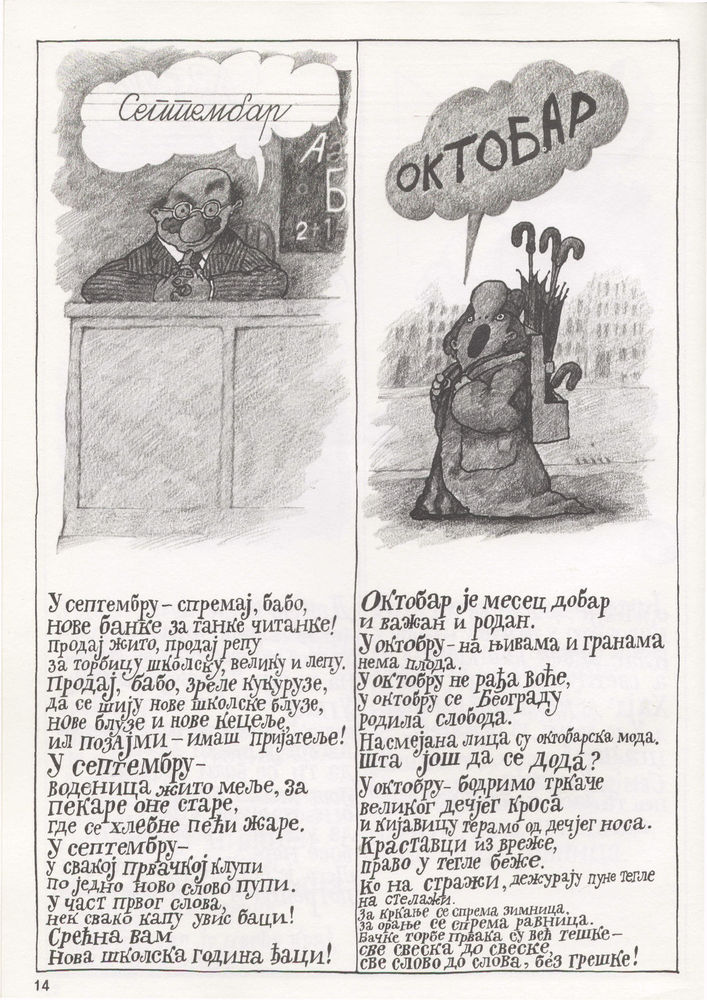 Септембар
А
Б
2+1
У септембру – спремај, бабо,
нове банке за танке читанке!
Продај жито, продај репу
за торбицу школску, велику и лепу.
Продај, бабо, зреле кукурузе,
да се шију нове школске блузе,
нове блузе и нове кецеље,
ил позајми – имаш пријатеље!
У септембру –
воденица жито меље, за
пекаре оне старе,
где се хлебне пећи жаре.
У септембру –
у свакој првачкој клупи
по једно ново слово пупи.
У част првог слова,
нек свако капу увис баци!
Срећна вам
Нова школска година ђаци!
14
ОКТОБАР
Октобар је месец добар
и важан и родан.
У октобру – на њивама и гранама
нема плода.
У октобру не рађа воће,
у октобру се Београду
родила слобода.
Насмејана лица су октобарска мода.
Шта још да се дода?
У октобру – бодримо тркаче
великог дечјег кроса
и кијавицу терамо од дечјег носа.
Краставци из вреже,
право у тегле беже.
Ко на стражи, дежурају пуне тегле
на стелажи.
За кркање се спрема зимница.
За орање се спрема равница.
Ђачке торбе првака су већ тешке –
све свеска до свеске,
све слово до слова, без грешке!